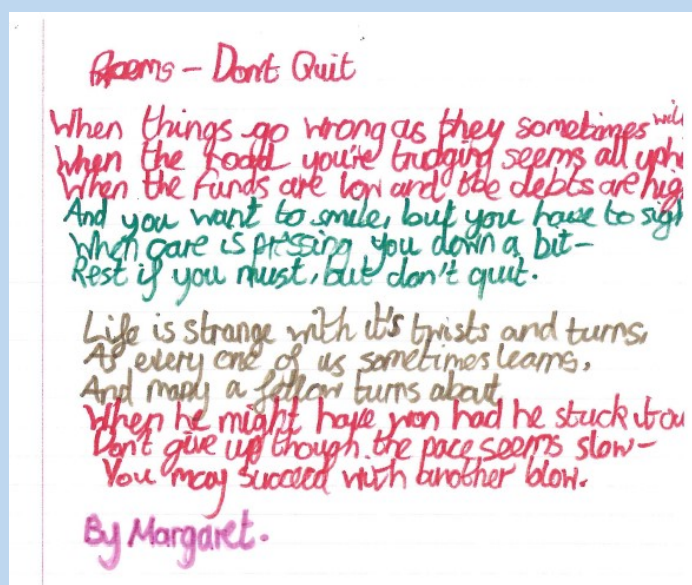 Poems - Dont Quit
When things go wrong as they sometimes will
When the road you're trudging seems all uphi
When the funds are low and the debts are hig
And you want to smile, but you have to sigh
When care is pressing you down a bit-
Rest if you must, but don't quit.
Life is strange with it's twists and turns,
As every one of us sometimes learns,
And many a fellow turns about
When he might have won had he stuck it ou
Don't give up though the pace seems slow-
You may succeed with another blow.
By Margaret.